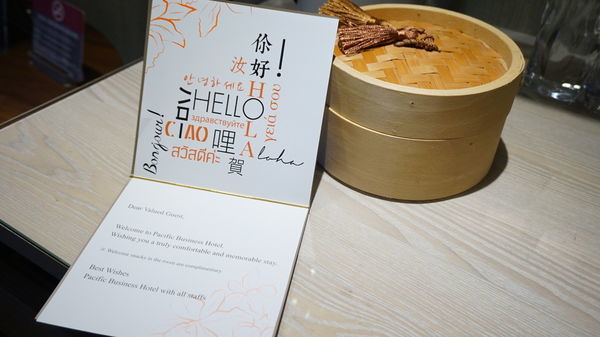 你好!
汝
안녕하세요
HELLO
HOLA
γειά σου
здравствуйте
CIAO
哩賀
สวัสดีค่ะ
Aloha
Bonjour!
Dear Valued Guest,
Welcome to Pacific Business Hotel.
Wishing you a truly comfortable and memorable stay.
※ Welcome snacks in the room are complimentary.
Best Wishes
Pacific Business Hotel with all staffs